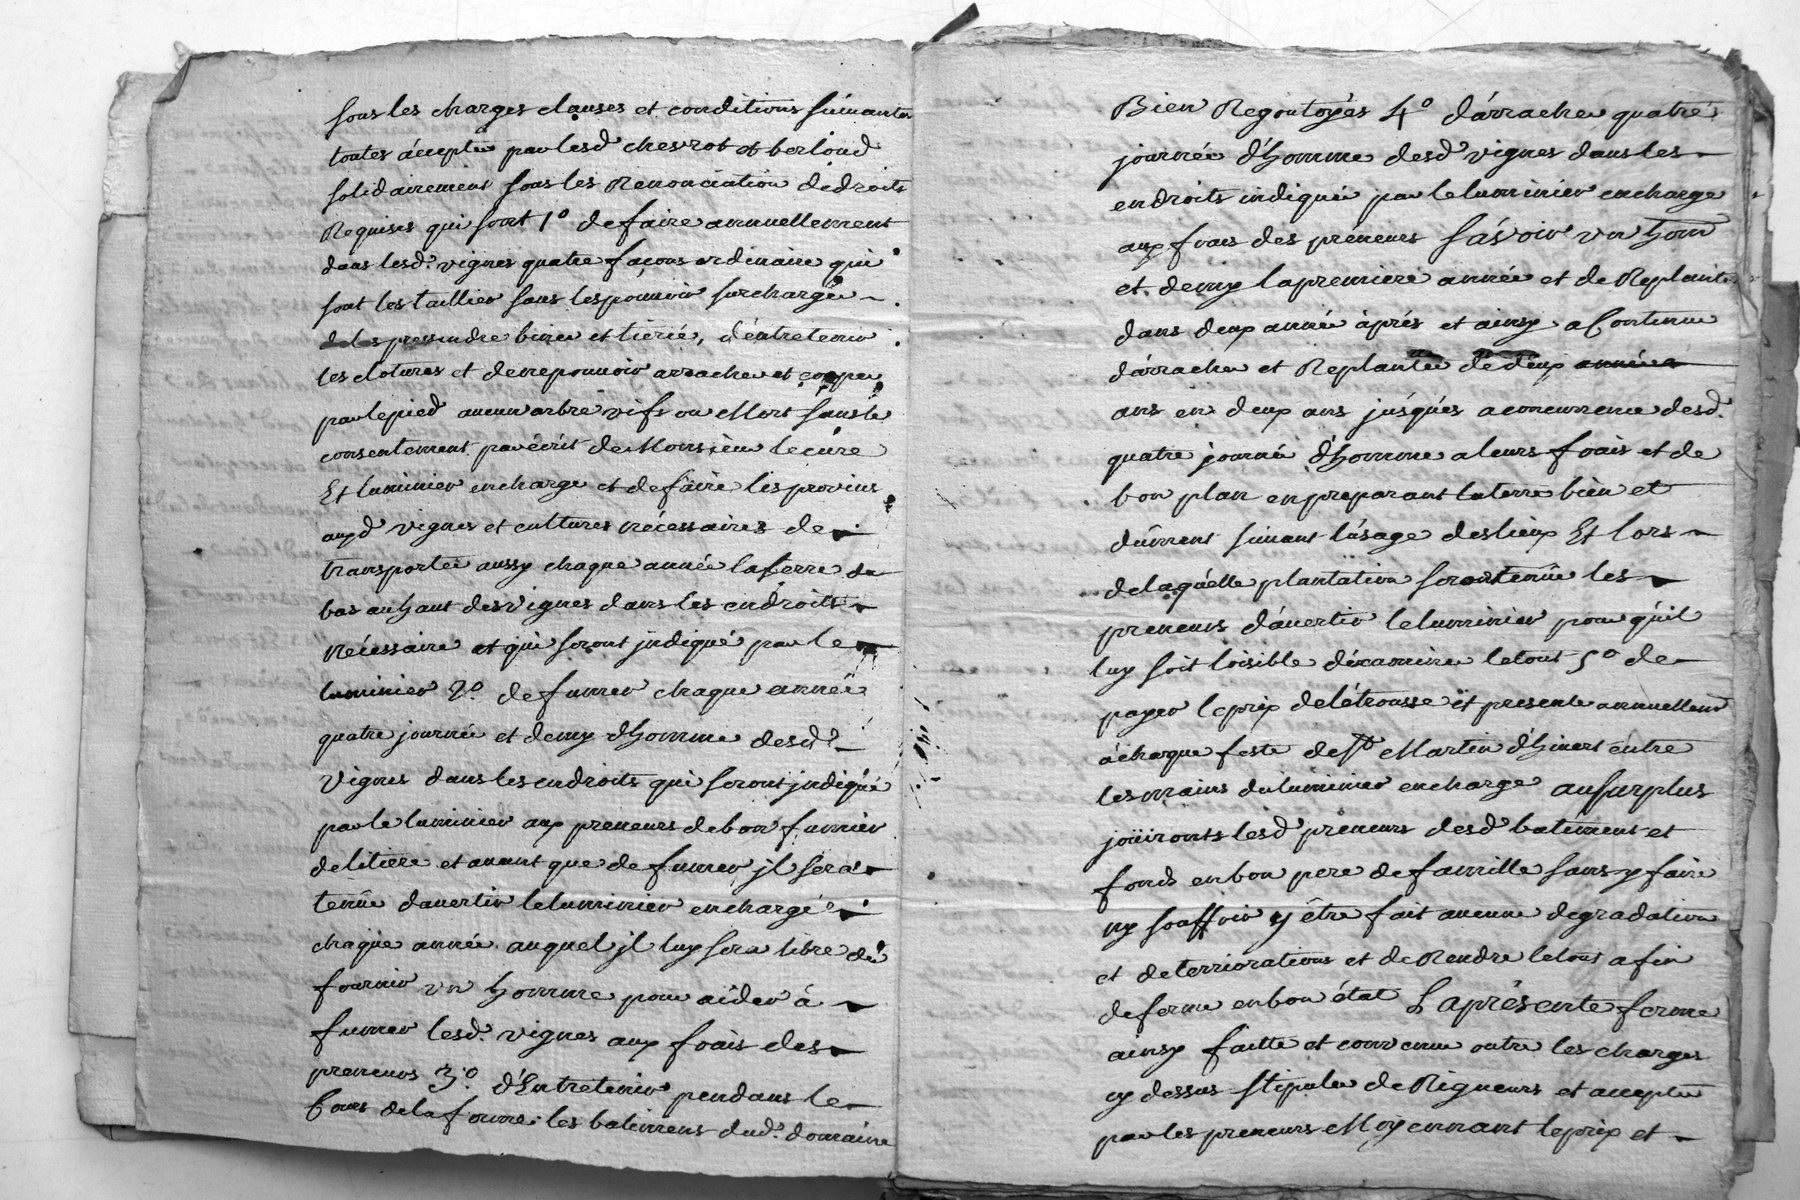 sous les charges clauses et conditions suivantes
toutes acceptée par lesd. chevrot et berloud
solidairement sous les Renonciation de droits
Requises qui sont 1º de faire annuellement
dans lesd. vignes quatre façons ordinaire qui
sont les taillier sans les pouvoir surcharger
prendre biner et tiercé, d'éntretenir
les clotures et de ne pouvoir arracher et couper
par le pied aucun arbre vifs ou Mort sans le
consentement par écrit de Monsieur le curé
Et luminier en charge et de faire les provins
auxd. vignes et cultures nécessaires de
transporter aussy chaque année la terre du
bas au haut des vignes dans les endroits
nécessaire et qui seront jndiqué par le
luminier 2º. de fumer chaque année
quatre journée et demy d'homme desd.
vignes dans les endroits qui seront jndiqué
par le luminier aux preneurs de bon fumier
de litiere et avant que de fumer jl sera
tenûe davertir le luminier en charge
chaque année auquel jl luy sera libre de
fournir un homme pour aider à
fumer lesd. vignes aux frais des
preneurs 3º. d'Entretenir pendant le
Cours de la ferme les batimens dud. domaine
Bien Regoutoyés 4º d'árracher quatre
journée d'homme desd. vignes dans les
endroits indiqué par le luminier en charge
aux frais des préneurs Sávoir un hom
et demy la premiere année et de Replanter
dans deux année àprés et ainsy a Continue
dárracher et Replanter de deux années
ans en deux ans jusqués a concurrence desd.
quatre journée d'homme a leurs frais et de
bon plan en preparant la terre bien et
dûment suivant lúsage des lieux Et lors
de laquélle plantation seront tenûe les
preneurs dávertir le luminier pour qúil
luy soit loisible déxaminer le tout 5º de
payer le prix de létrousse et presente annuellemt
à chaque feste de St Martin d'hivert éntre
les mains du luminier en charge au surplus
joüironts lesd. préneurs desd. batiment et
fonds en bon pere de famille sans y faire
ny souffrir y être fait aucune degradation
et deterriorations et de Rendre le tout a fin
de ferme en bon état La présente ferme
ainsy faitte et convenue outre les charges
cy dessus stipuler de Rigueurs et accepter
par les preneurs Moyennant le prix et